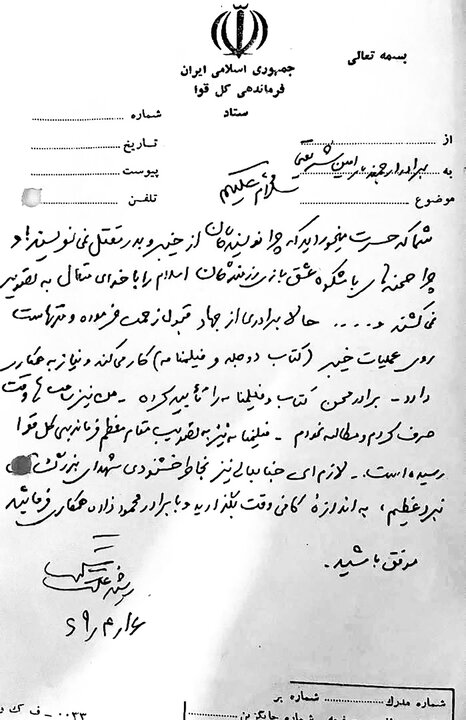 بسمه تعالی
جمهوری اسلامی ایران
فرماندهی کل قوا
ستاد
شماره
تاریخ
پیوست
تلفن
از
به برادر ارجمند امین شریعتی
موضوع
سلام علیکم
شما که حسرت میخورید که چرا نویسندگان از خیبر و بدر مقتل نمی نویسند! و
چرا صحنه های باشکوه عشق بازی رزمندگان اسلام را با خدای متعال به تصویر
نمی کشند و .... حالا برادری از جهاد قبول زحمت فرموده و مدتهاست
روی عملیات خیبر (کتاب دو جلد و فیلمنامه) کار می کند و نیاز به همکاری
دارد - برادر محسن کتاب و فیلمنامه را تأیید کرده - من نیز ساعت ها وقت
صرف کردم و مطالعه نمودم - فیلمنامه نیز به تصویب مقام معظم فرماندهی کل قوا
رسیده است. - لازم است جنابعالی نیز بخاطر خشنودی شهدای بزرگ
نبرد عظیم، به اندازهٔ کافی وقت بگذارید و با برادر محمودزاده همکاری فرمائید
موفق باشید.
شماره مدرک
شماره بر
شماره جایگزین
۰۰۳۳ - ف ک